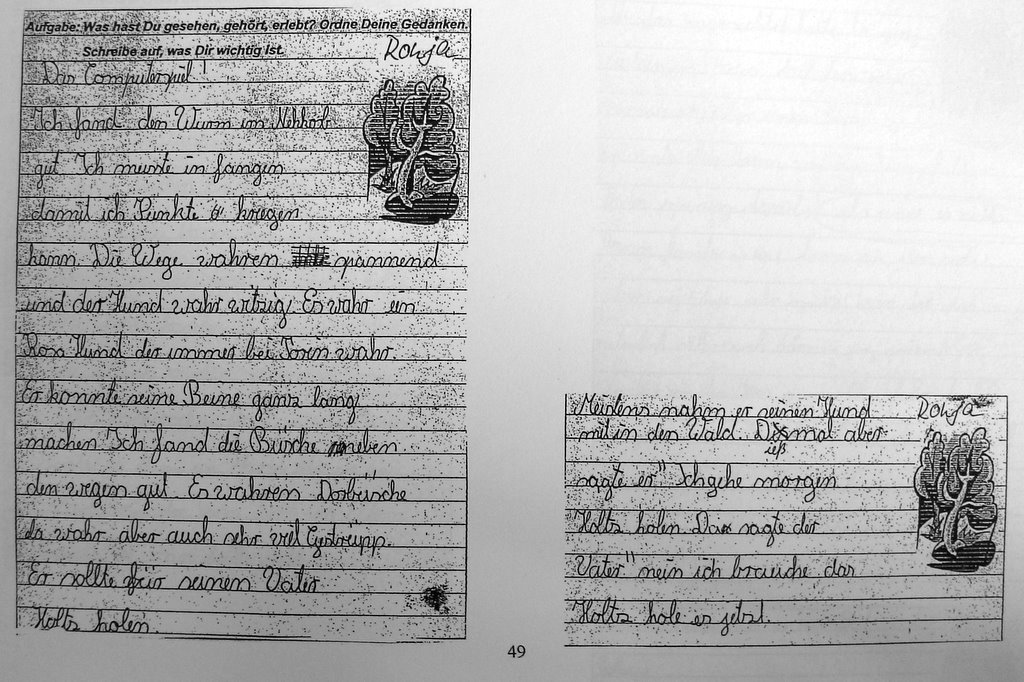 Aufgabe: Was hast Du gesehen, gehört, erlebt? Ordne Deine Gedanken.
Schreibe auf, was Dir wichtig ist.
Ronja
Das Computerspiel!
Ich fand den Wurm im
gut Ich muste in fangen
damit ich Punkte kriegen
kann. Die Wege wahren spannend
und der Hund wahr witzig. Es wahr ein
Rosa Hund der immer bei Torin wahr.
Er konnte seine Beine ganz lang
machen Ich fand die Büsche neben
den wegen gut. Es wahren Dorbüsche
da wahr aber auch sehr viel Gestreüpp.
Er sollte für seinen Vater
Holts holen.
Meistens nahm er seinen Hund
Ronja
mit in den Wald. Diesmal aber
ieß
sagte er" Ich gehe morgen
Holts holen. Das sagte der
Vater" nein ich brauche das
Holts hole es jetzt.
49